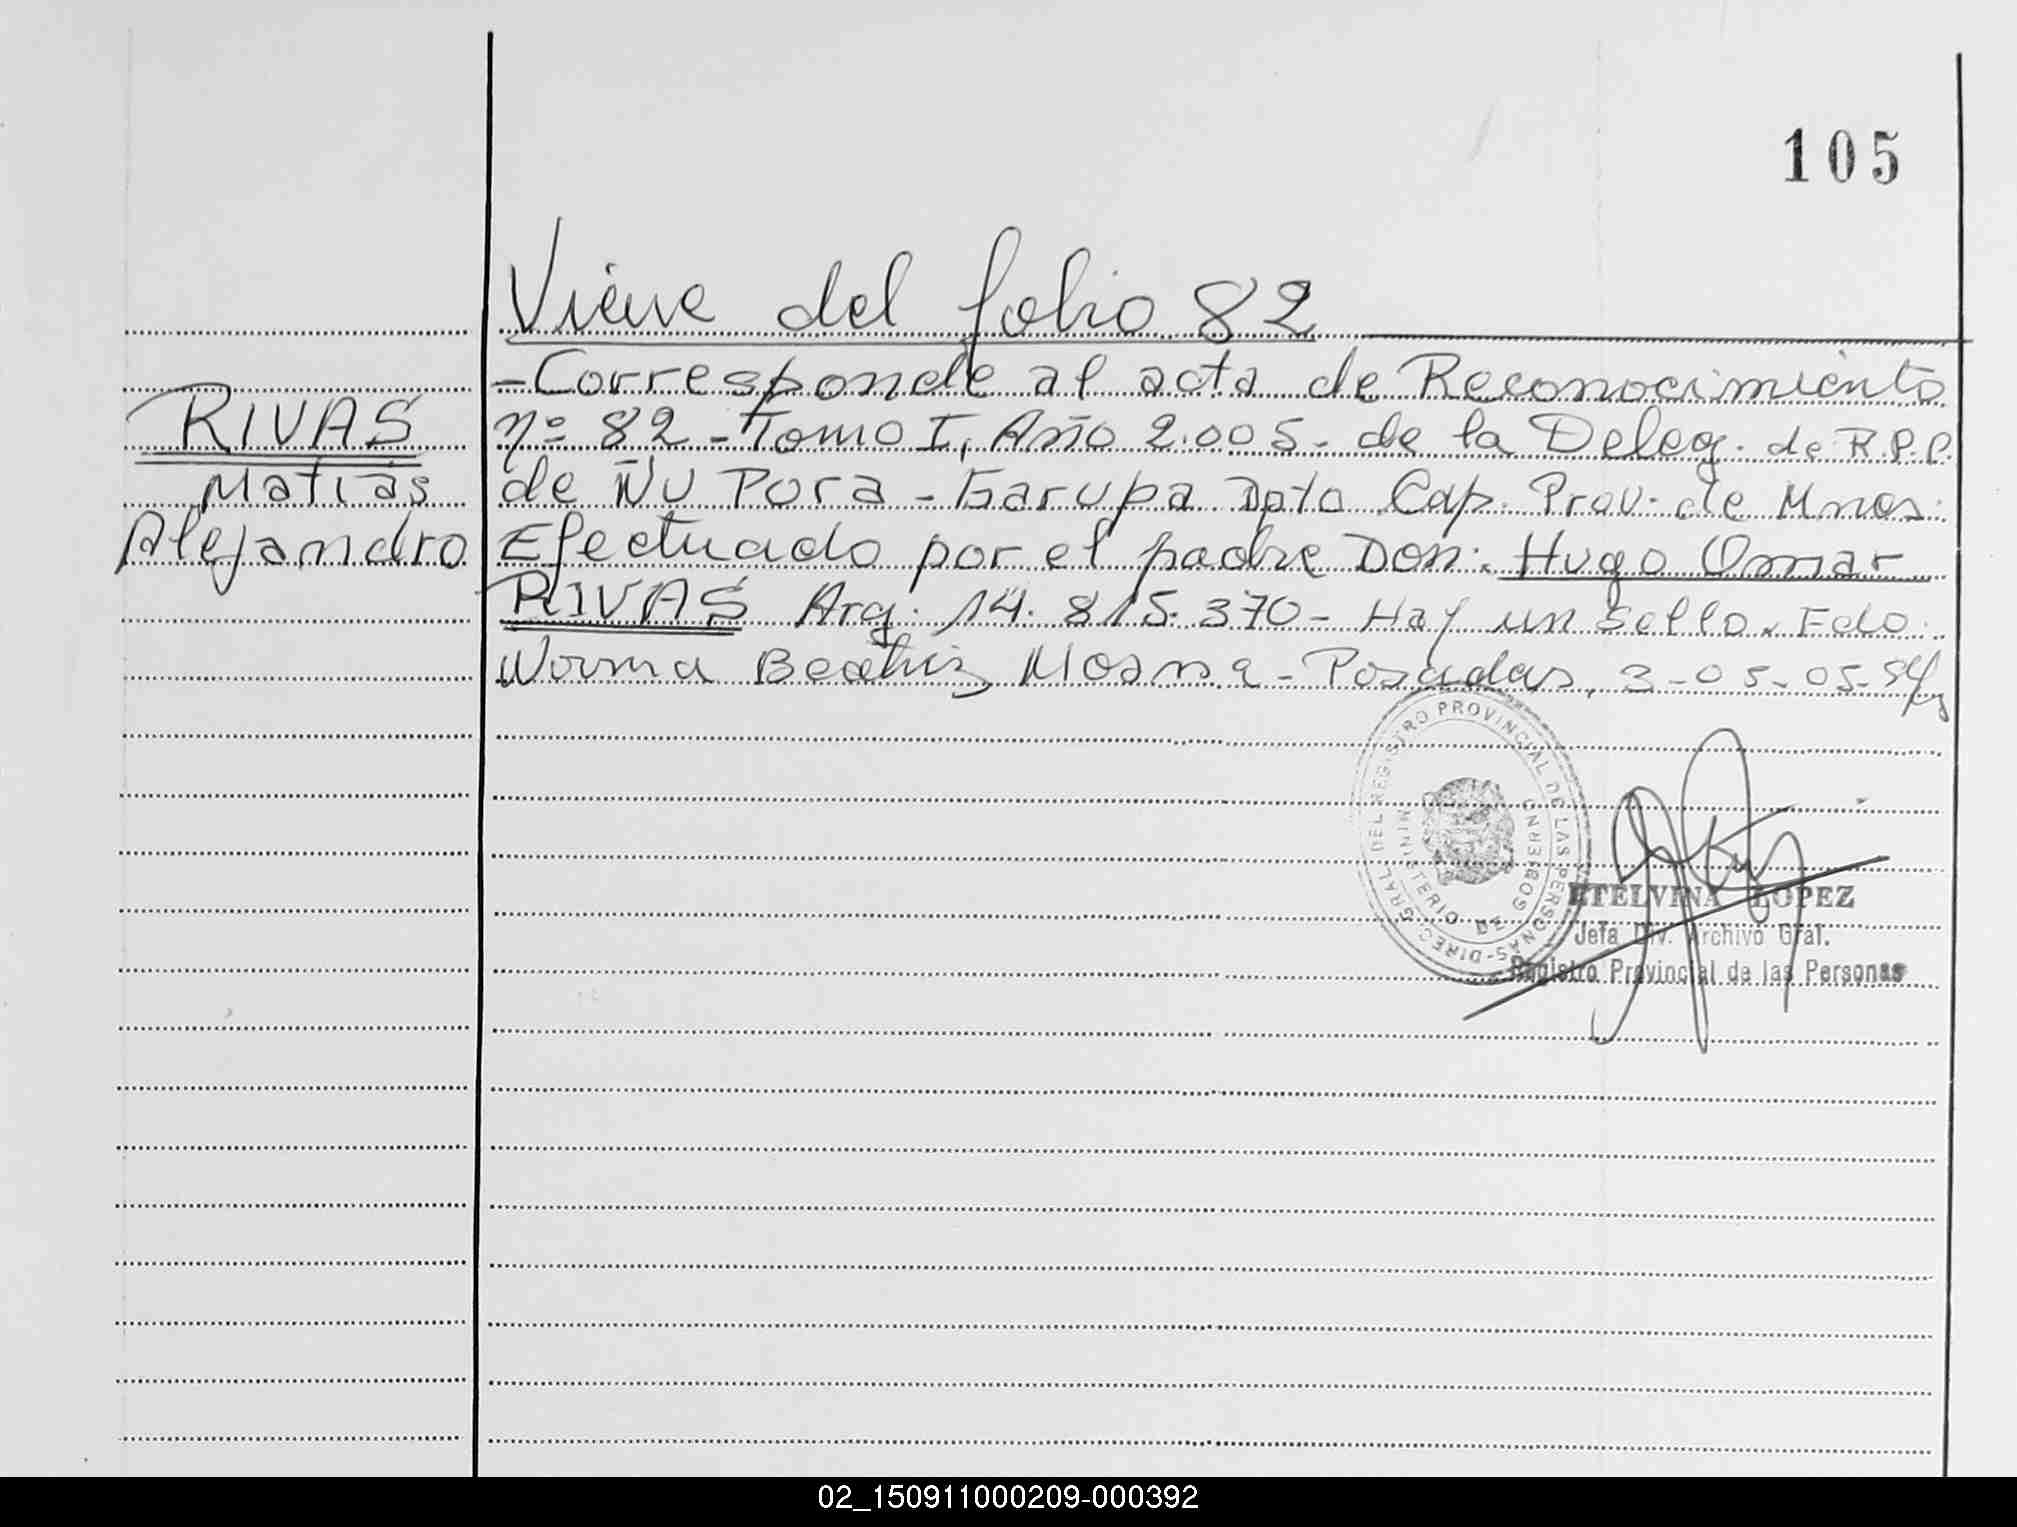 105
Viene del folio 82
- Corresponde al acta de Reconocimiento
RIVAS
nº 82 - Tomo I, Año 2.005 - de la Deleg. de R.P.P.
Matías
de Ñu Pora - Garupa Dpto Cap. Prov. de Mnes.
Alejandro
Efectuado por el padre Don: Hugo Omar
RIVAS Arg. 14.815.370 - Hay un Sello. Fdo.
Norma Beatriz - Posadas, 3-05-05.
DIREC. GRAL DEL REGISTRO PROVINCIAL DE LAS PERSONAS
MINISTERIO DE GOBIERNO
ETELVINA LOPEZ
Jefa Div. Archivo Gral.
Registro Provincial de las Personas
02_150911000209-000392